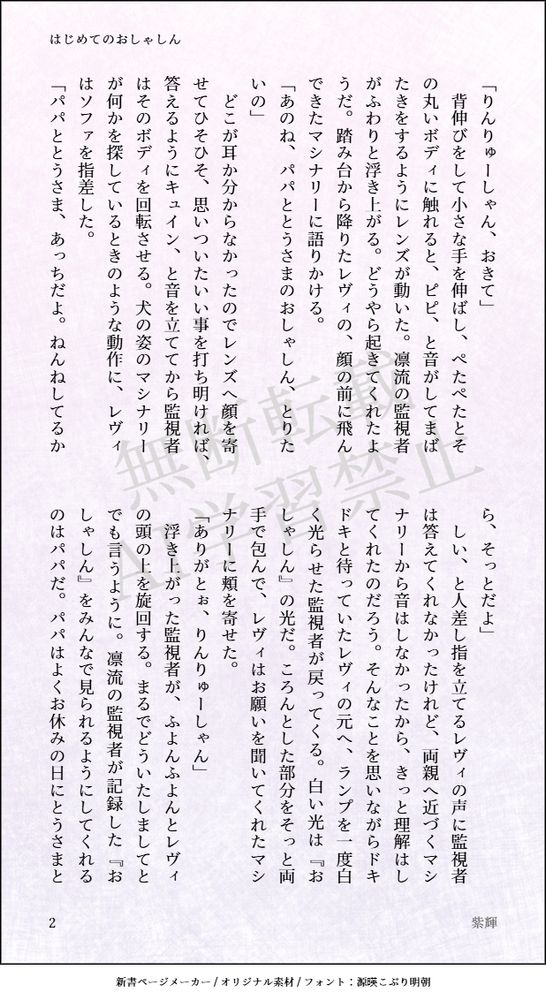 はじめてのおしゃしん
「りんりゅーしゃん、おきて」
　背伸びをして小さな手を伸ばし、ぺたぺたとそ
の丸いボディに触れると、ピピ、と音がしてまば
たきをするようにレンズが動いた。凛流の監視者
がふわりと浮き上がる。どうやら起きてくれたよ
うだ。踏み台から降りたレヴィの、顔の前に飛ん
できたマシナリーに語りかける。
「あのね、パパととうさまのおしゃしん、とりた
いの」
　どこが耳か分からなかったのでレンズへ顔を寄
せてひそひそ、思いついたいい事を打ち明ければ、
答えるようにキュイン、と音を立ててから監視者
はそのボディを回転させる。犬の姿のマシナリー
が何かを探しているときのような動作に、レヴィ
はソファを指差した。
「パパととうさま、あっちだよ。ねんねしてるか
ら、そっとだよ」
　しい、と人差し指を立てるレヴィの声に監視者
は答えてくれなかったけれど、両親へ近づくマシ
ナリーから音はしなかったから、きっと理解はし
てくれたのだろう。そんなことを思いながらドキ
ドキと待っていたレヴィの元へ、ランプを一度白
く光らせた監視者が戻ってくる。白い光は『お
しゃしん』の光だ。ころんとした部分をそっと両
手で包んで、レヴィはお願いを聞いてくれたマシ
ナリーに頬を寄せた。
「ありがとぉ、りんりゅーしゃん」
　浮き上がった監視者が、ふよんふよんとレヴィ
の頭の上を旋回する。まるでどういたしましてと
でも言うように。凛流の監視者が記録した『お
しゃしん』をみんなで見られるようにしてくれる
のはパパだ。パパはよくお休みの日にとうさまと
無断転載
AI学習禁止
2
紫輝
新書ページメーカー / オリジナル素材 / フォント：源暎こぶり明朝